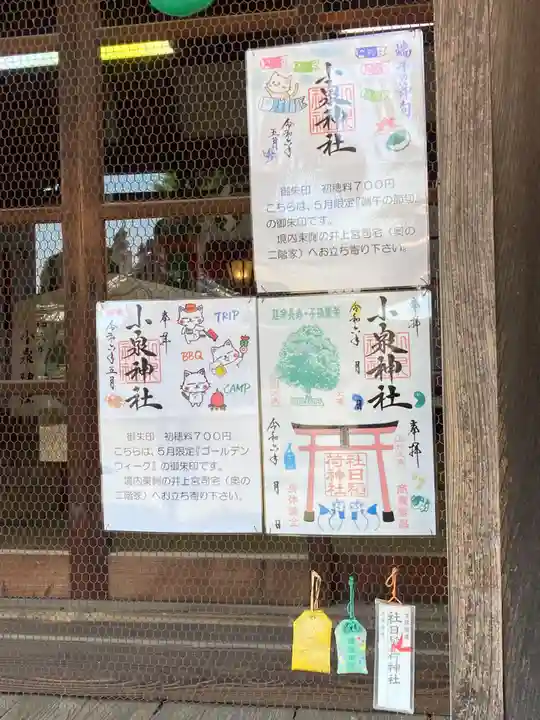 端午の節句
小泉神社
令和六年
五月
御朱印 初穂料700円
こちらは、5月限定『端午の節句』
の御朱印です。
境内東側の井上宮司宅（奥の
二階家）へお立ち寄り下さい。
奉拝
小泉神社
令和六年五月
TRIP
BBQ
CAMP
御朱印 初穂料700円
こちらは、5月限定『ゴールデン
ウィーク』の御朱印です。
境内東側の井上宮司宅（奥の
二階家）へお立ち寄り下さい。
奉拝
小泉神社
令和六年 月 日
奉拝
社日稲
荷神社
令和六年 月 日
商売繁盛
社日稲荷神社
小泉神